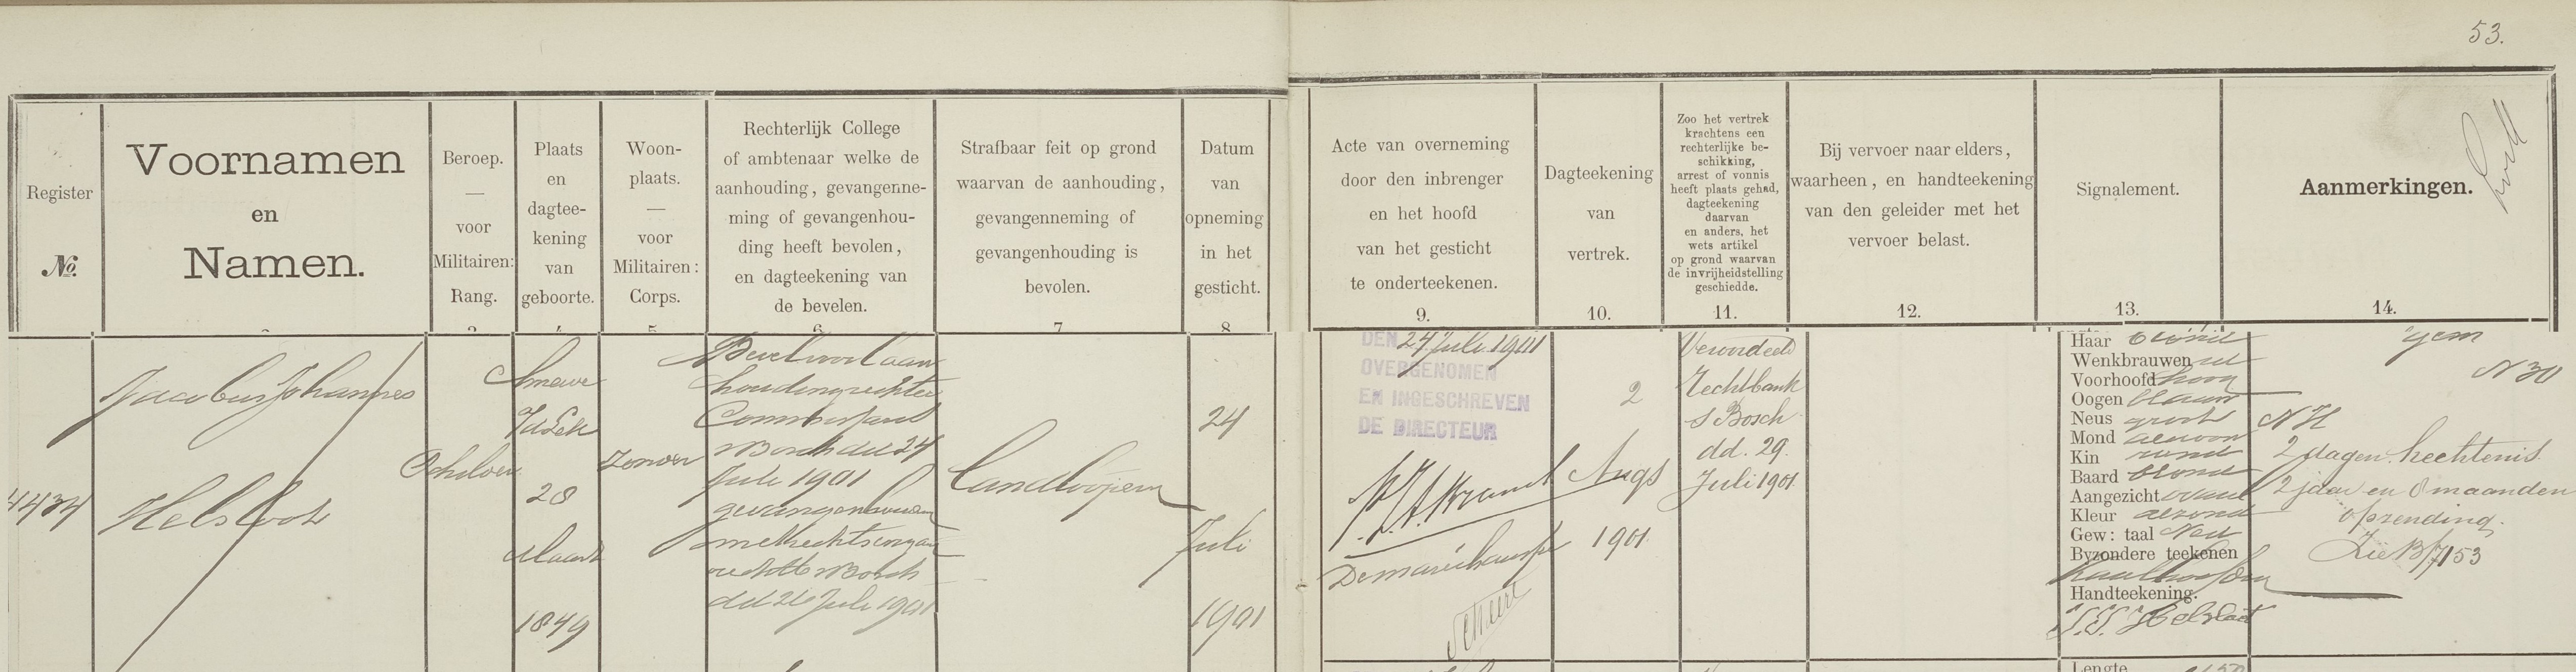 53.
Register
No.
Voornamen
en
Namen.
Beroep.
—
voor
Militairen:
Rang.
Plaats
en
dagtee-
kening
van
geboorte.
Woon-
plaats.
—
voor
Militairen:
Corps.
Rechterlijk College
of ambtenaar welke de
aanhouding, gevangenne-
ming of gevangenhou-
ding heeft bevolen,
en dagteekening van
de bevelen.
Strafbaar feit op grond
waarvan de aanhouding,
gevangenneming of
gevangenhouding is
bevolen.
7
Datum
van
opneming
in het
gesticht.
8
Acte van overneming
door den inbrenger
en het hoofd
van het gesticht
te onderteekenen.
9.
Dagteekening
van
vertrek.
10.
Zoo het vertrek
krachtens een
rechterlijke be-
schikking,
arrest of vonnis
heeft plaats gehad,
dagteekening
daarvan
en anders, het
wets artikel
op grond waarvan
de invrijheidstelling
geschiedde.
11.
Bij vervoer naar elders,
waarheen, en handteekening
van den geleider met het
vervoer belast.
12.
Signalement.
13.
Aanmerkingen.
14.
4434
Jacobus Johannes
Helsloot
Schilder
28
Maart
1849
Zonder
Bevel voorl aan
houding rechter
Commissaris
s Bosch dd 24
Juli 1901
gevangenhouding
dd 26 Juli 1901
Landlooperij
24
Juli
1901
DEN 24 Juli 1901
OVERGENOMEN
EN INGESCHREVEN
DE DIRECTEUR
2
Augs
1901
Veroordeeld
Rechtbank
s Bosch
dd. 29.
Juli 1901.
Haar blond
Wenkbrauwen id
Voorhoofd hoog
Oogen blauw
Neus groot
Mond gewoon
Kin rond
Baard blond
Aangezicht ovaal
Kleur gezond
Gew: taal Ned
Byzondere teekenen
Kaalhoofdig
Handteekening.
J.J. Helsloot
gem
N 30
N H
2 dagen hechtenis
2 jaar en 8 maanden
opzending.
Zie B/7153
Lengte